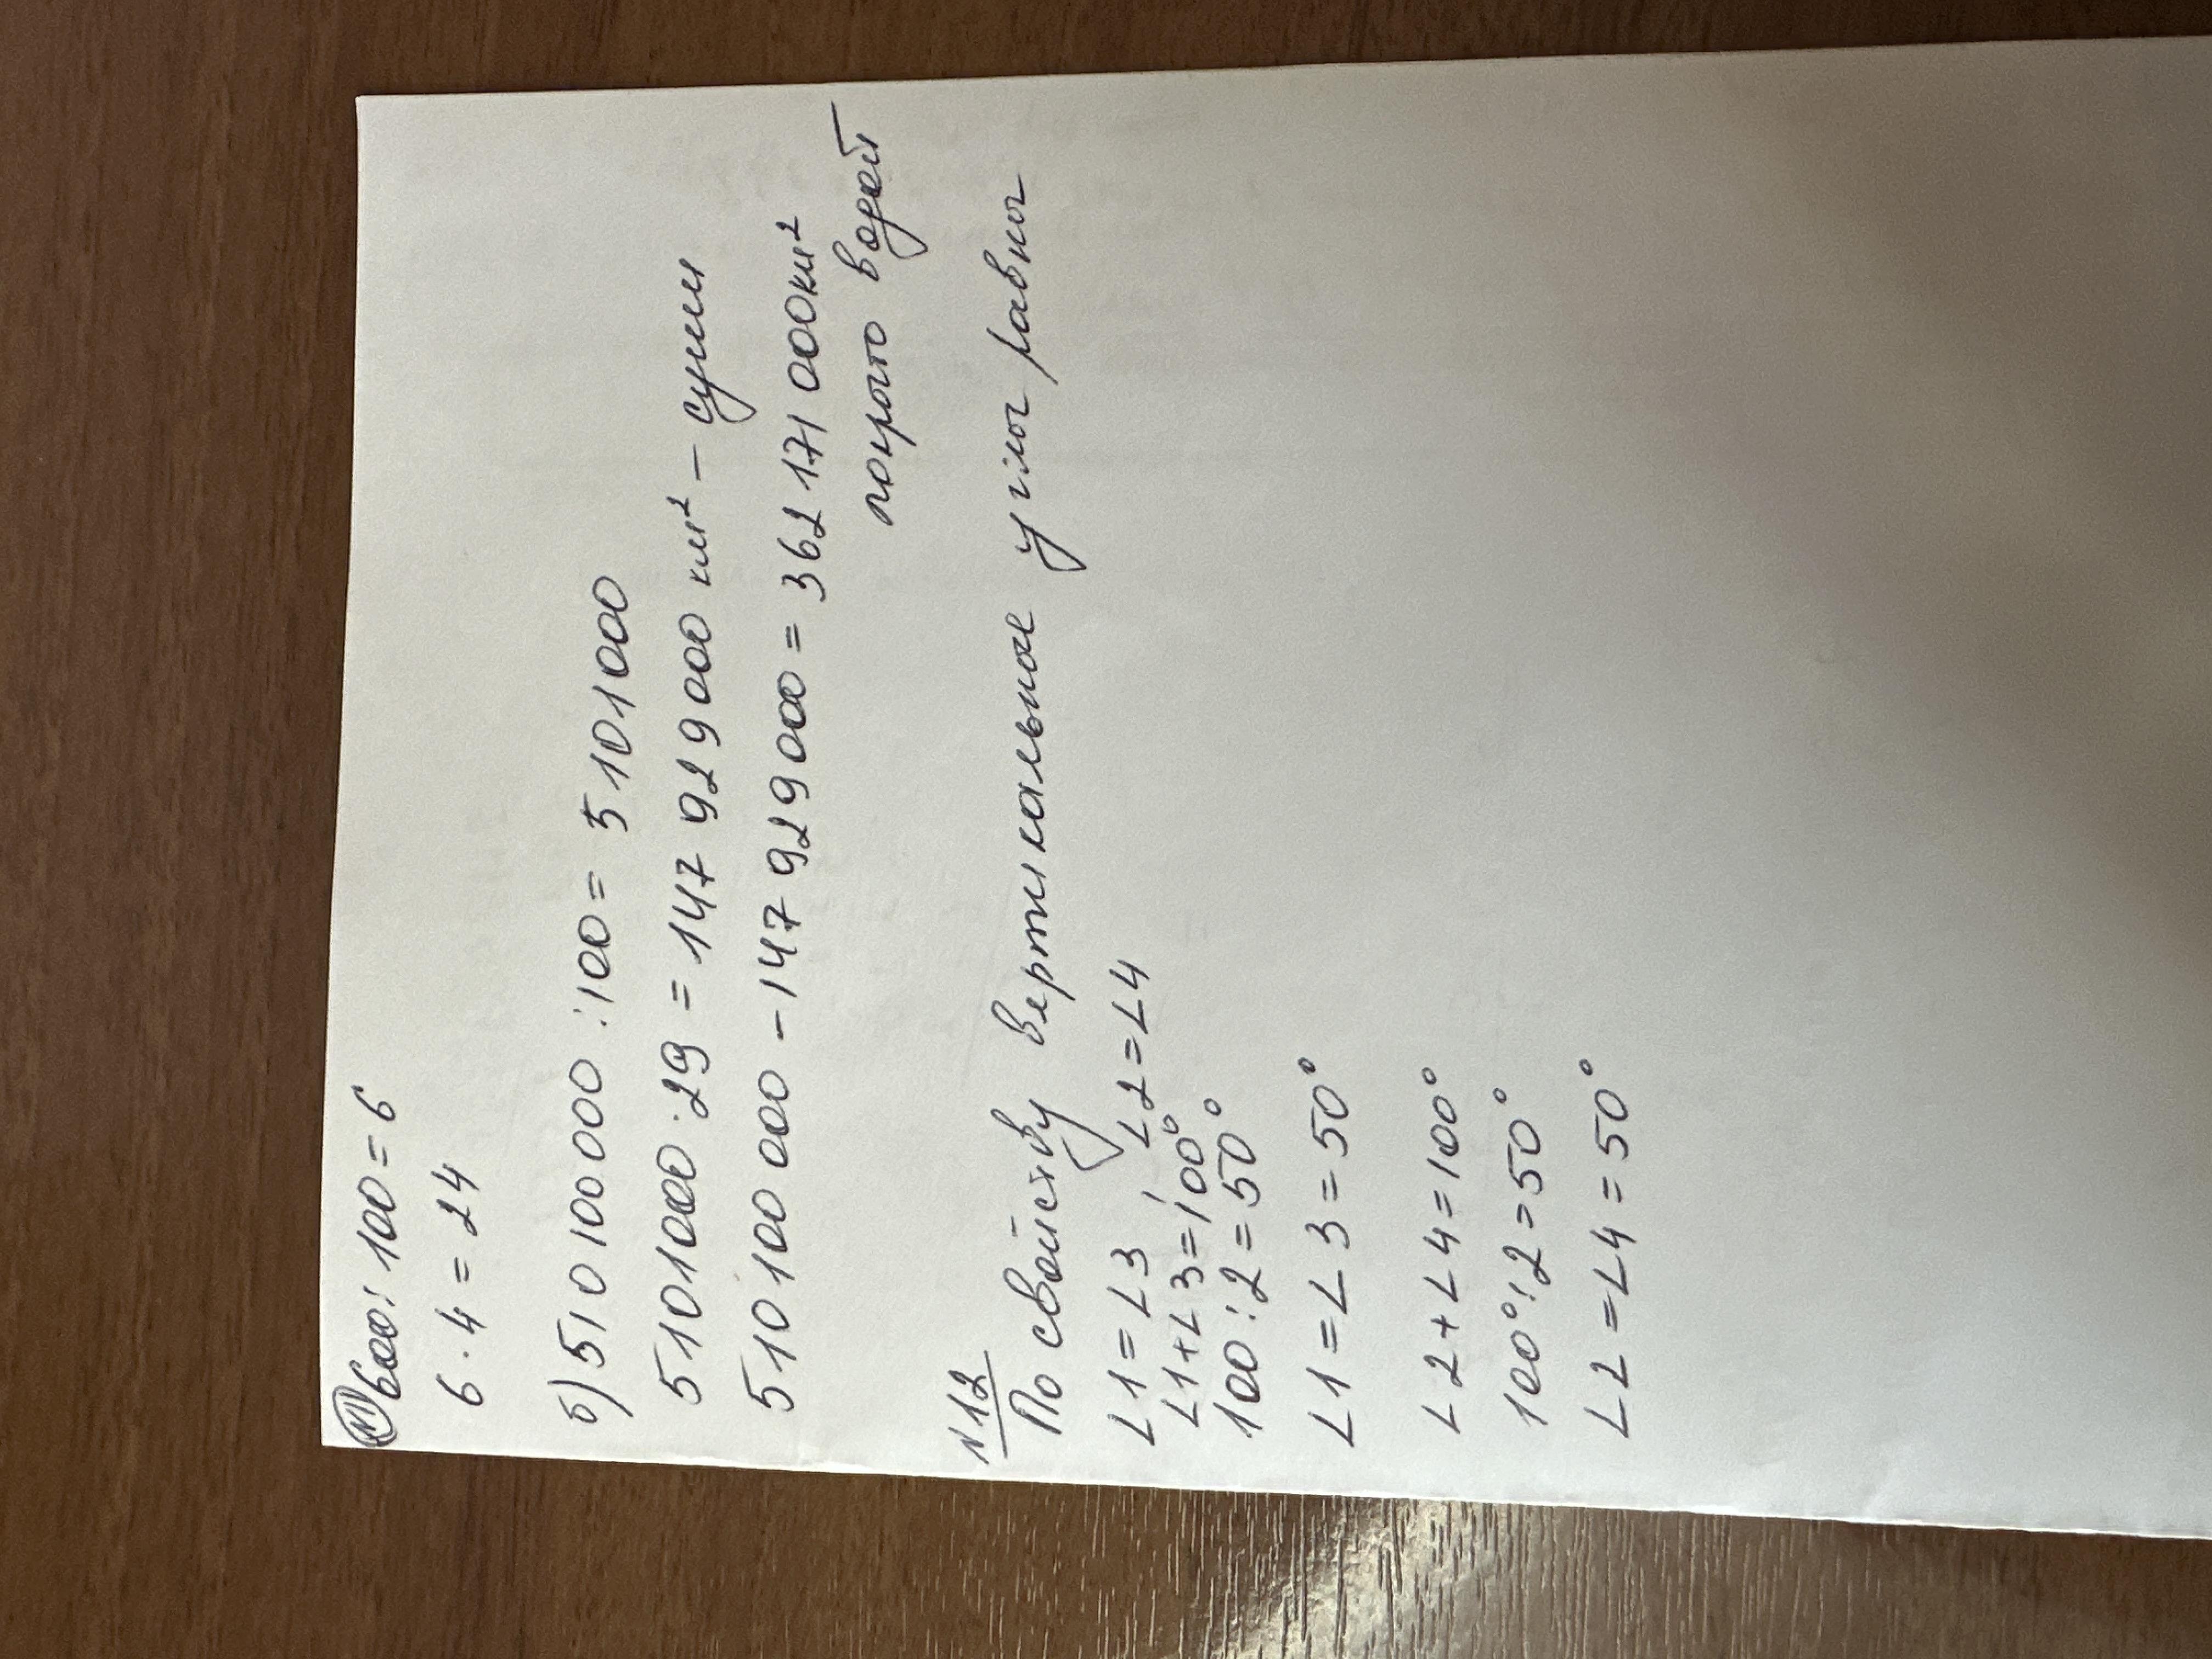 600 : 100 = 6
6 · 4 = 24
б) 510 100 000 : 100 = 5 101 000
5 101 000 · 29 = 147 929 000 км² – суши
510 100 000 – 147 929 000 = 362 171 000 км²
покрыто водой
N12
По свойству вертикальные углы равны
∠1 = ∠3, ∠2 = ∠4
∠1 + ∠3 = 100°
100 : 2 = 50°
∠1 = ∠3 = 50°
∠2 + ∠4 = 100°
100° : 2 = 50°
∠2 = ∠4 = 50°